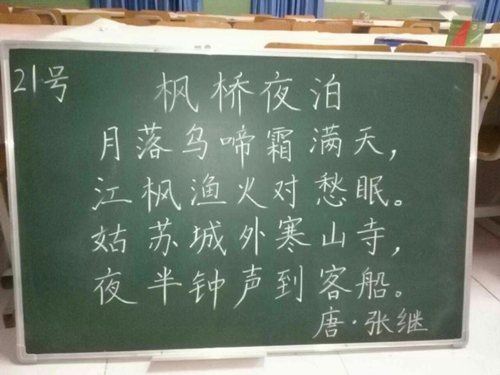 21号
枫桥夜泊
月落乌啼霜满天，
江枫渔火对愁眠。
姑苏城外寒山寺，
夜半钟声到客船。
唐·张继